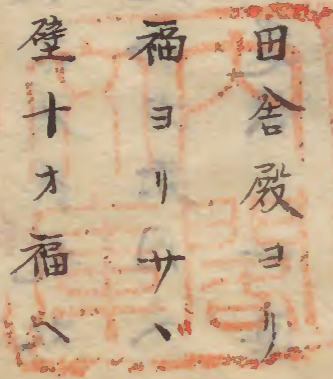 田舎殿ヨリ
福ヨリサヽ
壁十才福へ